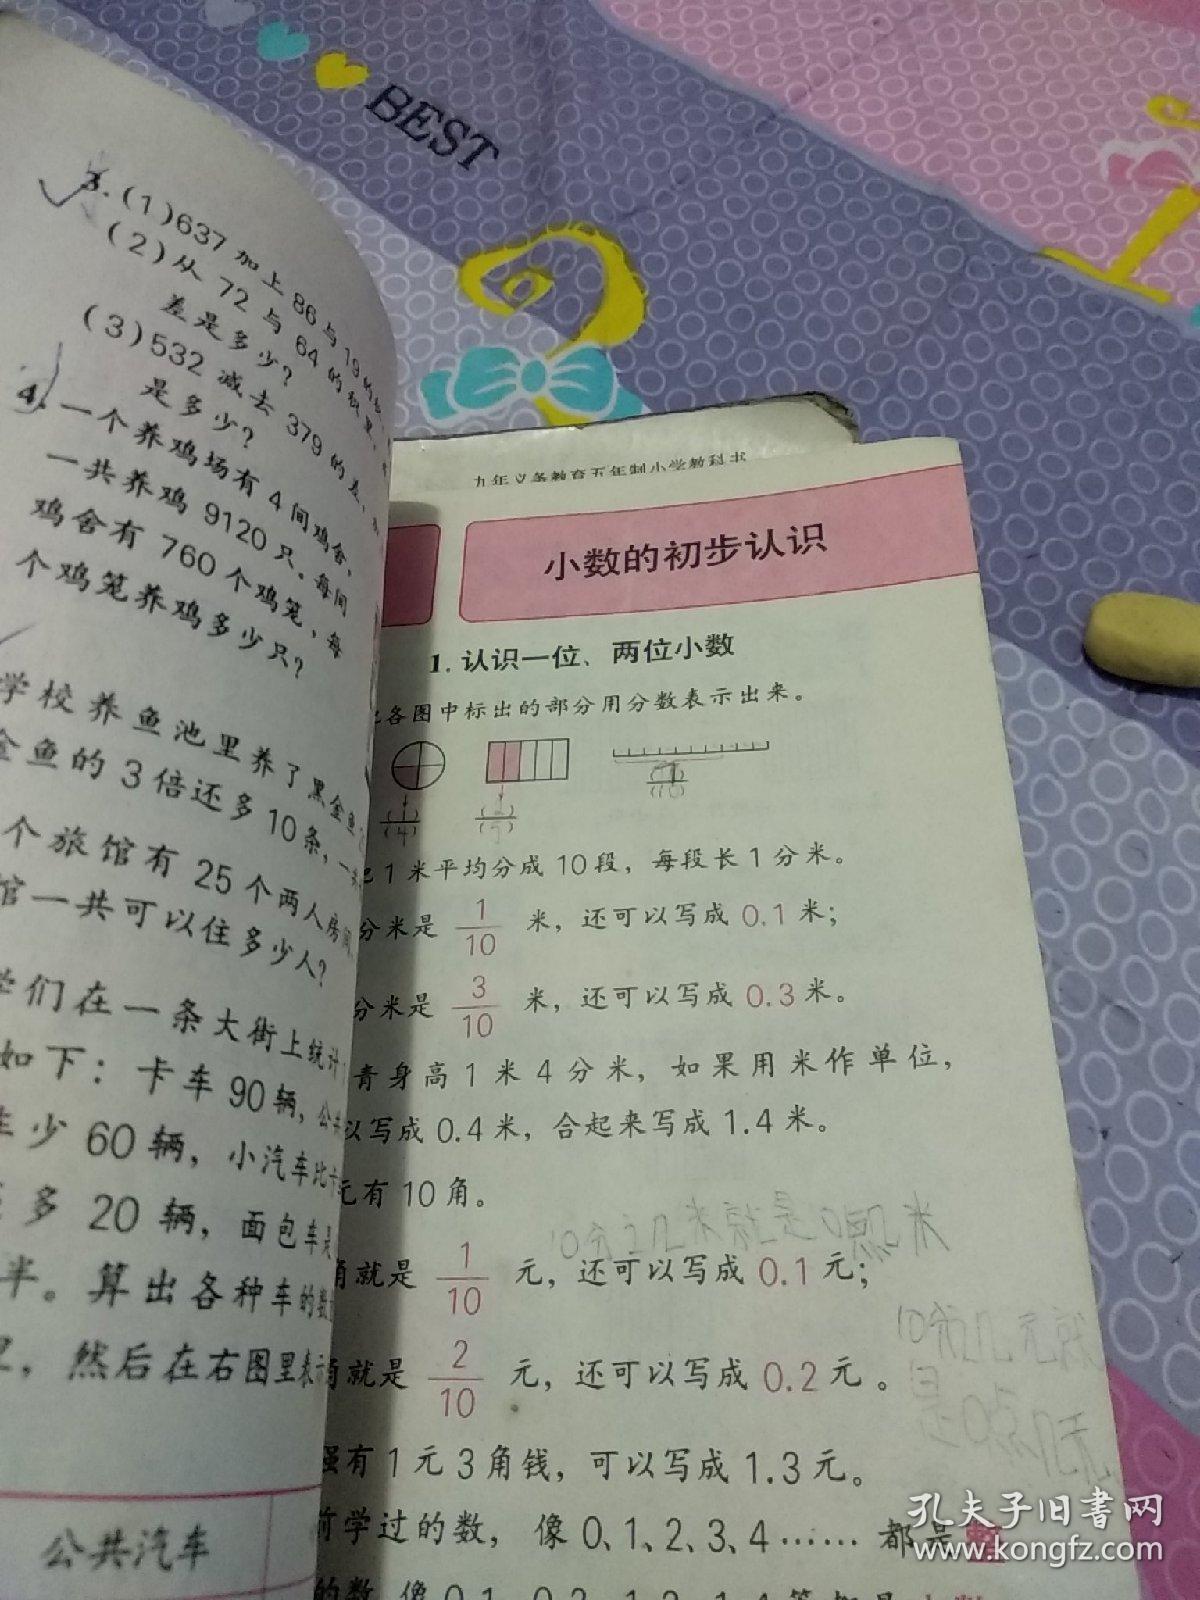 BEST
3.(1)637加上86与19的
(2)从72与64的积里,
差是多少?
(3)532减去379的差,
是多少?
4.一个养鸡场有4间鸡舍,
一共养鸡9120只。每间
鸡舍有760个鸡笼,每
个鸡笼养鸡多少只?
学校养鱼池里养了黑金鱼
金鱼的3倍还多10条,一共
个旅馆有25个两人房间,
馆一共可以住多少人?
学们在一条大街上统计
如下:卡车90辆,公共
车少60辆,小汽车比卡
多20辆,面包车是
半。算出各种车的数
,然后在右图里表示
公共汽车
九年义务教育五年制小学教科书
小数的初步认识
1.认识一位、两位小数
把各图中标出的部分用分数表示出来。
(1)/(4) (2)/(5) (7)/(10)
把1米平均分成10段,每段长1分米。
分米是1/10米,还可以写成0.1米;
分米是3/10米,还可以写成0.3米。
青身高1米4分米,如果用米作单位,
以写成0.4米,合起来写成1.4米。
元有10角。
10分之几米就是0点几米
角就是1/10元,还可以写成0.1元;
10分之几元就
是0点几元
角就是2/10元,还可以写成0.2元。
强有1元3角钱,可以写成1.3元。
前学过的数,像0、1、2、3、4……都是
的数,像0.1、0.2、1.3、1.4等都是小数
孔夫子旧书网
www.kongfz.com